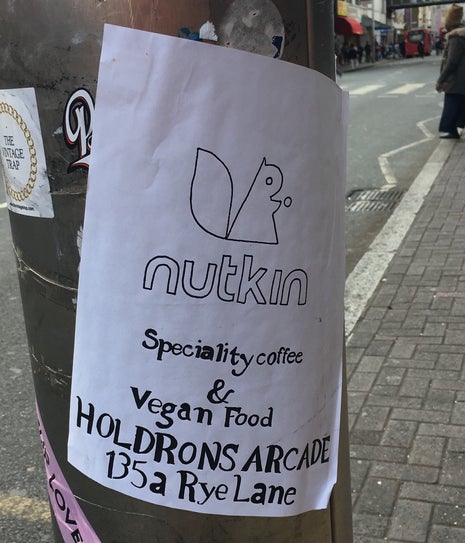 THE
VINTAGE
TRAP
nutkin
Speciality coffee
&
Vegan Food
HOLDRONS ARCADE
135a Rye Lane
LOVE